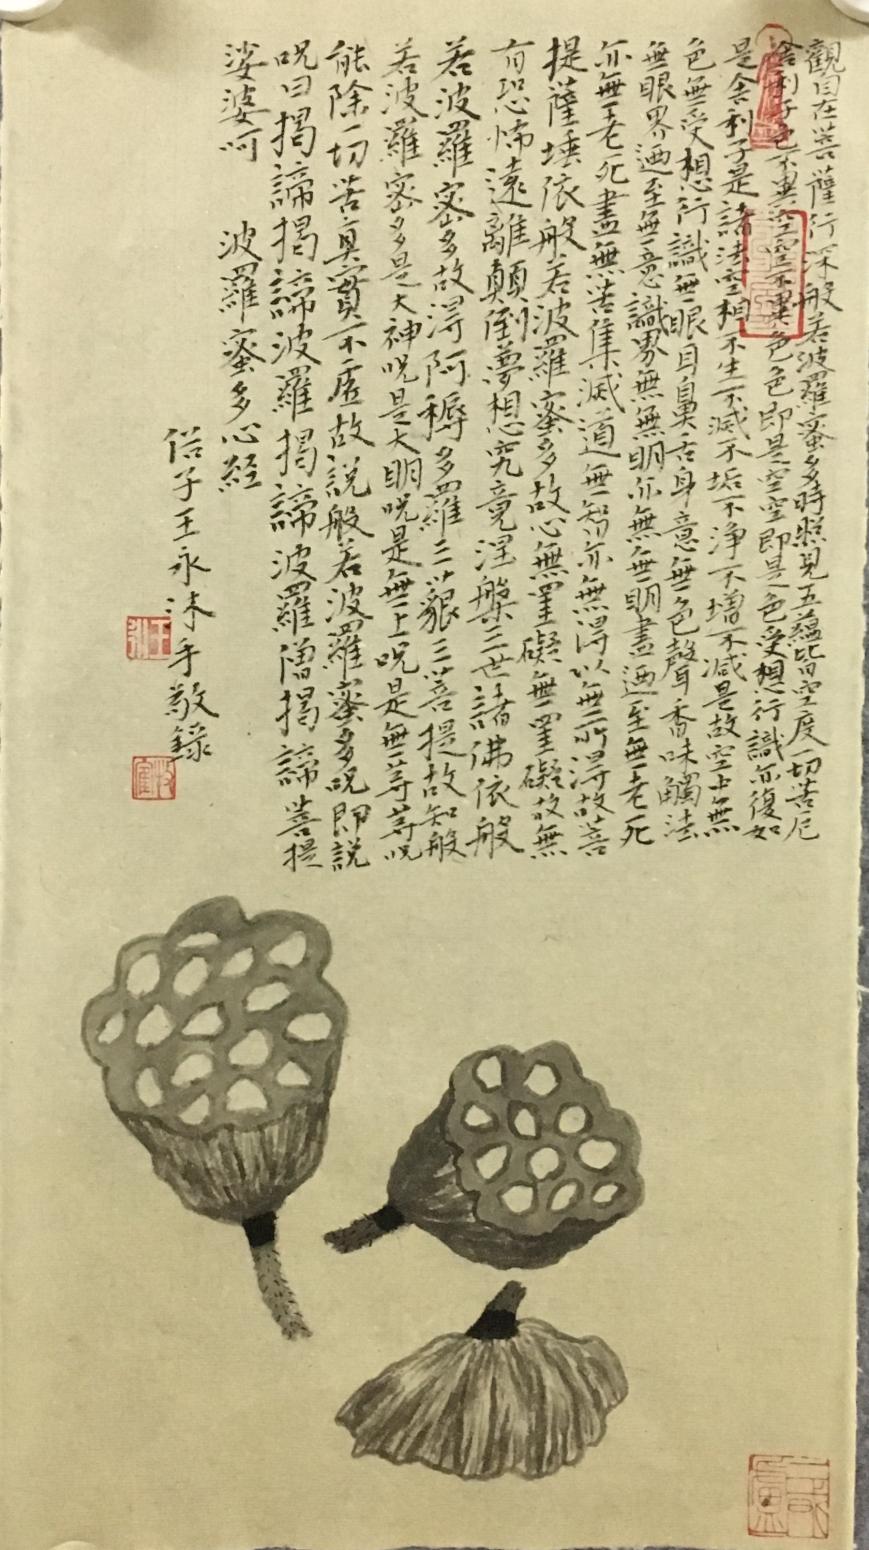 觀自在菩薩行深般若波羅蜜多時照見五蘊皆空度一切苦厄
舍利子色不異空空不異色色即是空空即是色受想行識亦復如
是舍利子是諸法空相不生不滅不垢不淨不增不減是故空中無
色無受想行識無眼耳鼻舌身意無色聲香味觸法
無眼界迺至無意識界無無明亦無無明盡迺至無老死
亦無老死盡無苦集滅道無智亦無得以無所得故菩
提薩埵依般若波羅蜜多故心無罣礙無罣礙故無
有恐怖遠離顛倒夢想究竟涅槃三世諸佛依般
若波羅蜜多故得阿耨多羅三藐三菩提故知般
若波羅蜜多是大神呪是大明呪是無上呪是無等等呪
能除一切苦真實不虛故說般若波羅蜜多呪即說
呪曰揭諦揭諦波羅揭諦波羅僧揭諦菩提
娑婆呵 波羅蜜多心經
信子王永沐手敬錄